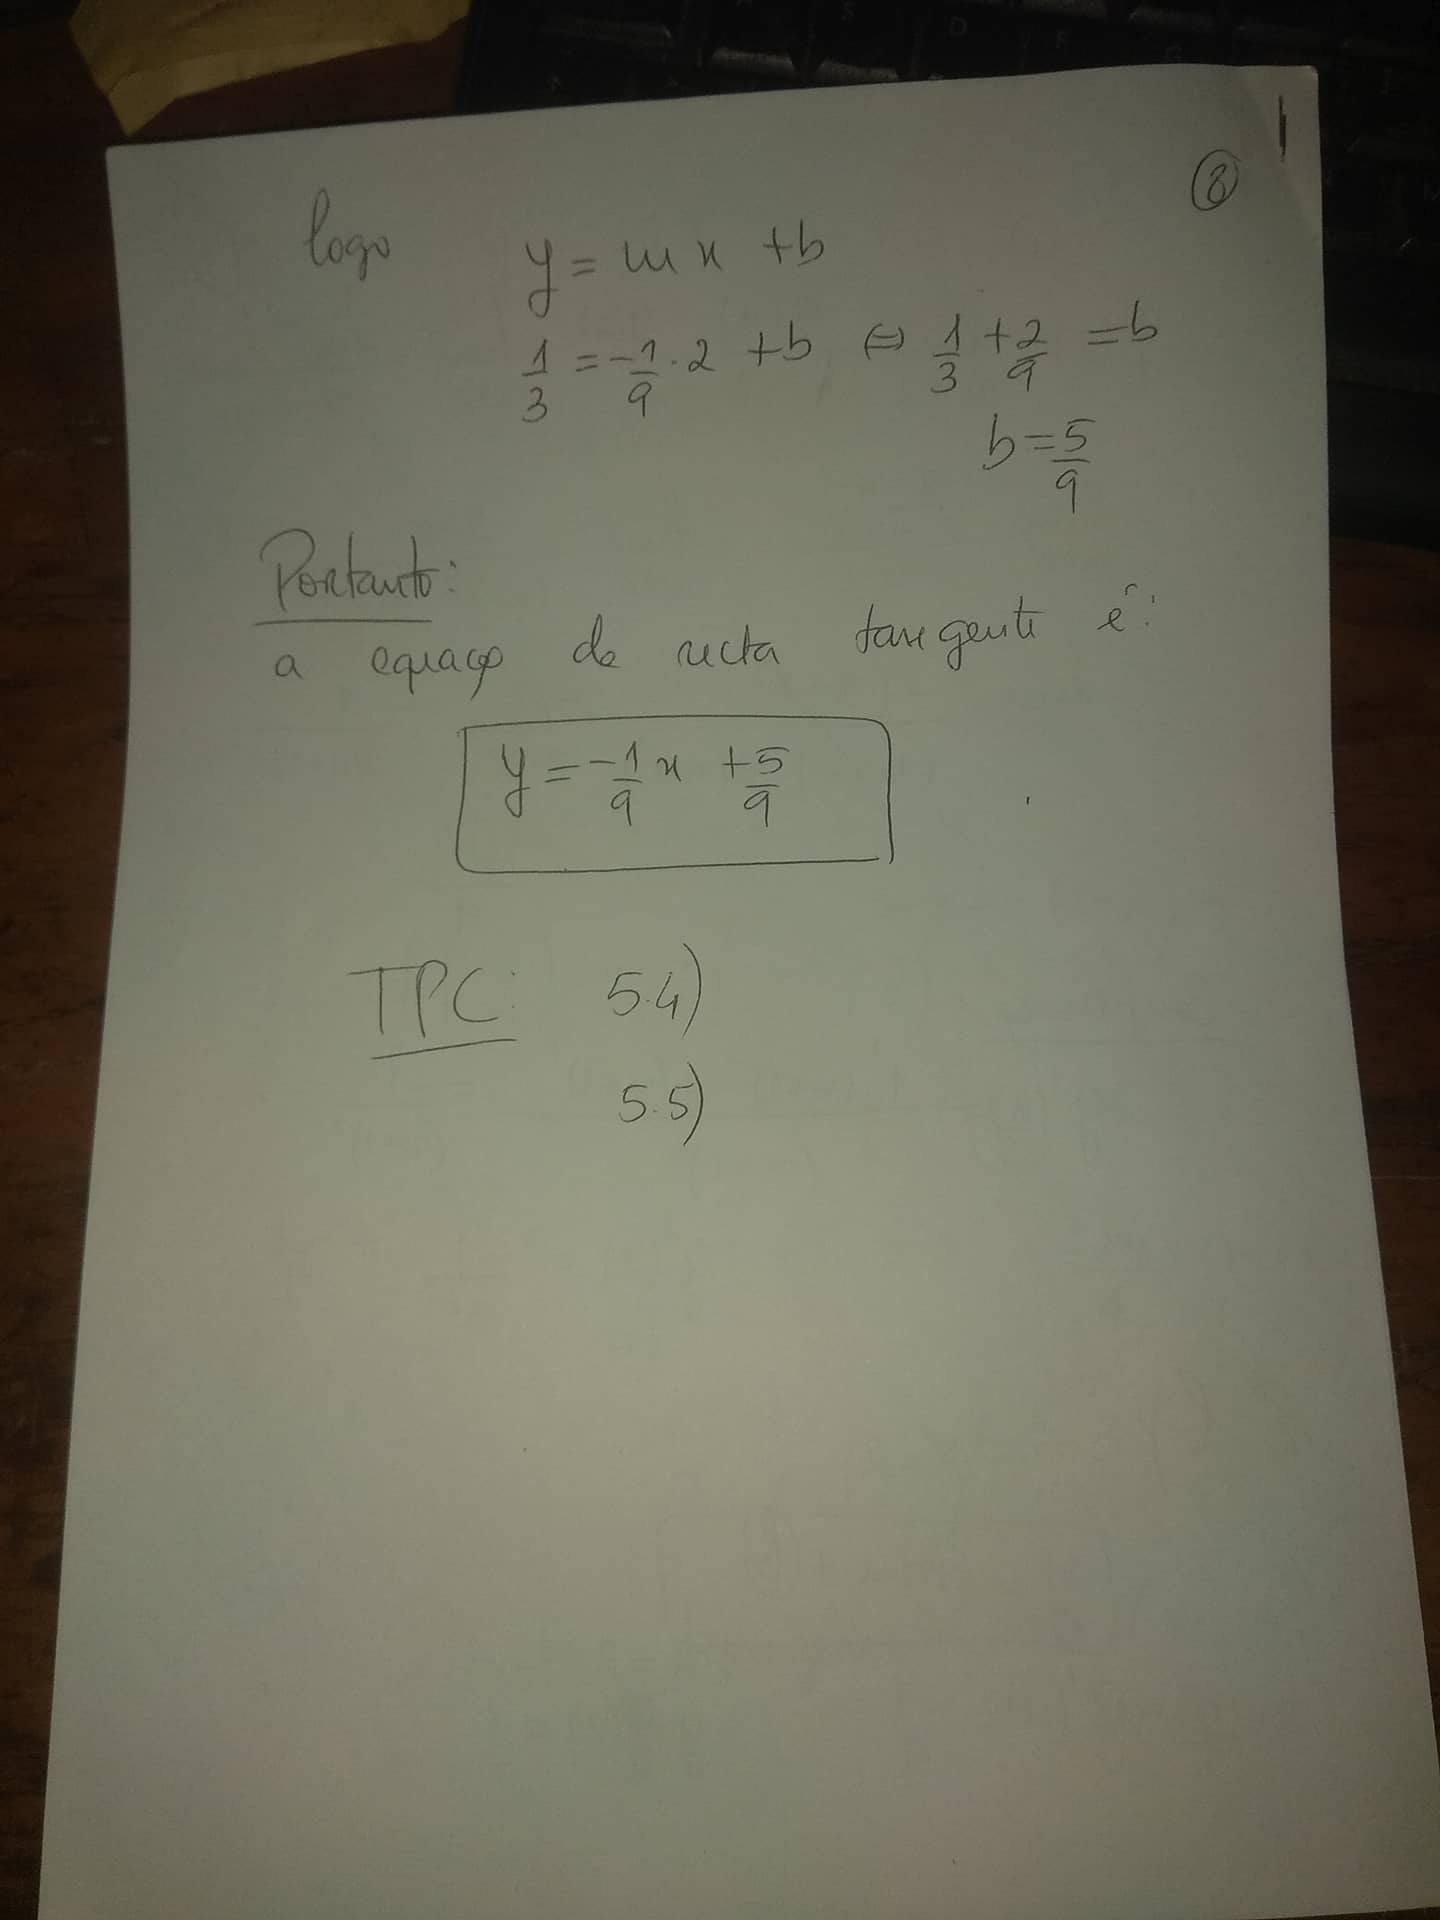 8
logo y = mx + b
1/3 = -1/9 · 2 + b ⇔ 1/3 + 2/9 = b
b = 5/9
Portanto:
a equação da recta tangente é:
y = -1/9 x + 5/9
TPC: 5.4)
5.5)